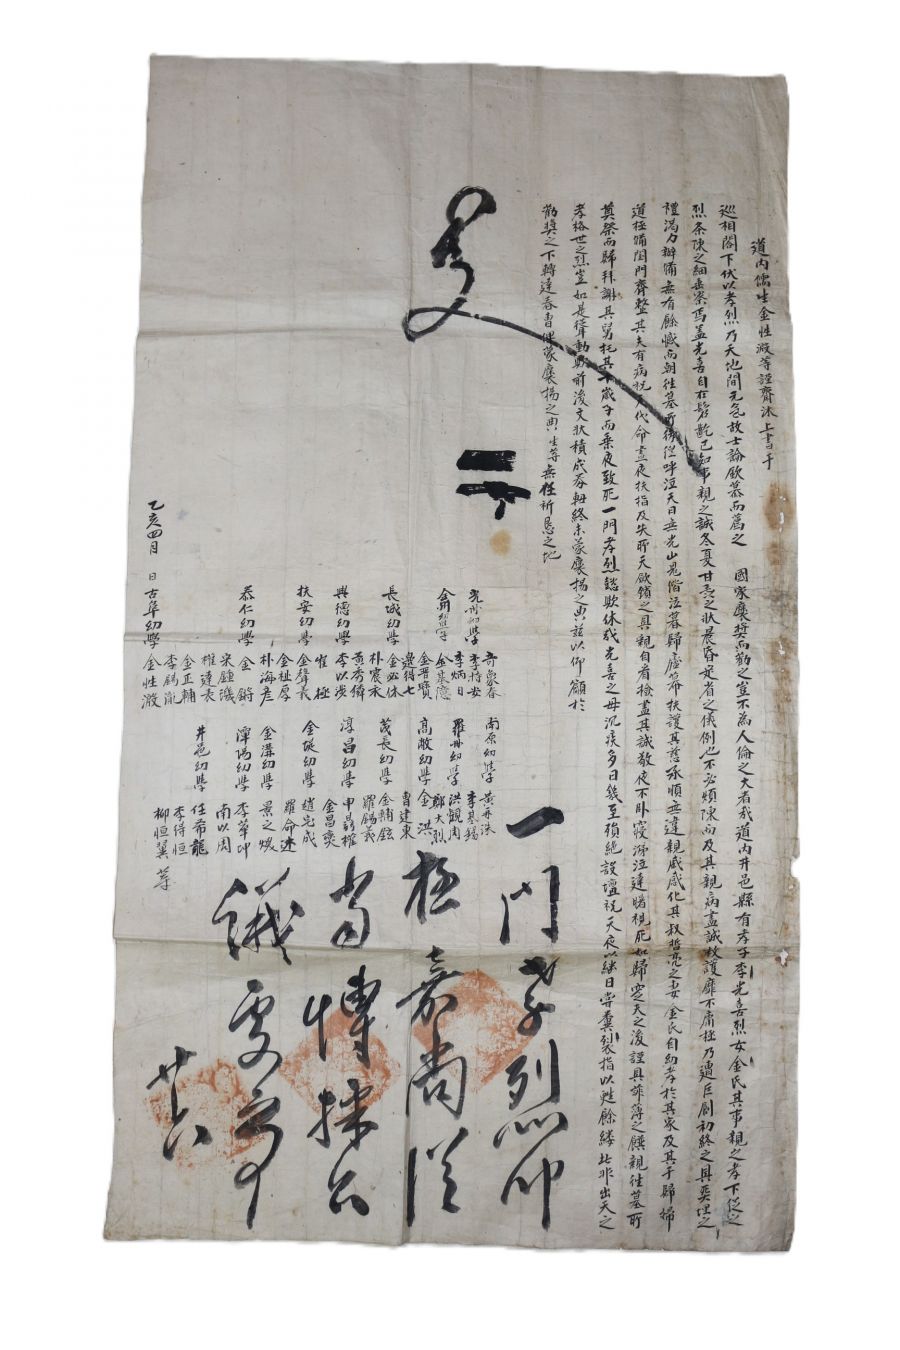 道內儒生金性溵等謹齋沐上書于
巡相閤下伏以孝烈乃天地間元氣故士論欽慕而薦之 國家褒獎而勸之豈不為人倫之大者哉道內井邑縣有孝子李光喜烈女金氏其事親之孝下從之
烈條陳之細垂察焉盖光喜自在髫齔已知事親之誠冬夏甘旨之狀晨昏定省之儀例也不必煩陳而及其親病盡誠救護靡不庸極乃遭巨創初終之具葬埋之
禮渴力辦備無有餘憾而朝往墓所後從呼泣天日無光山鬼偕泣暮歸廬幕扶護其慈承順無違親戚感化其叔哲亮之妻金氏自幼孝於其家及其于歸婦
道極備閨門齊整其夫有病祝天代命晝夜扶指及失所天欲鎖之具親自看檢盡其誠敬夜不卧寢涕泣達曙視死如歸窆夫之後謹具菲薄之饌親往墓所
奠祭而歸拜謝其舅托其下歲子而乘夜致死一門孝烈懿歟休哉光喜之母沉痰多日幾至殞絕設壇祝天夜以継日甞糞裂指以甦餘縷此非出天之
孝格世之烈豈如是聳動歟前後文狀積成芬軸終未蒙褒揚之典玆以仰籲於
勸獎之下轉達春曹俾蒙褒揚之典生等無任祈恳之地
光州幼學 奇象春
李持安
李炳日
金溝幼學 金箕澺
金晋賢
邊得七
長城幼學 金必休
朴宸承
黃秀偉
興德幼學 李以成
崔極
扶安幼學 金聲長
金祉厚
朴海彥
泰仁幼學 金鏘
宋鍾璣
權達表
金正輔
李錫胤
乙亥四月 日古阜幼學 金性溵
南原幼學 黃
李基錫
羅州幼學 洪觀周
鄭大烈
高敞幼學 金洪
曹建東
茂長幼學 金輔鉉
羅錫義
淳昌幼學 申昌權
金昌奭
金堤幼學 趙完成
羅命述
金溝幼學 景之煥
潭陽幼學 李華中
南以周
井邑幼學 任希龍
李得恒
柳恒翼 等
使
一門孝烈仰
極嘉尚從
當博採公
議更牒
廿六